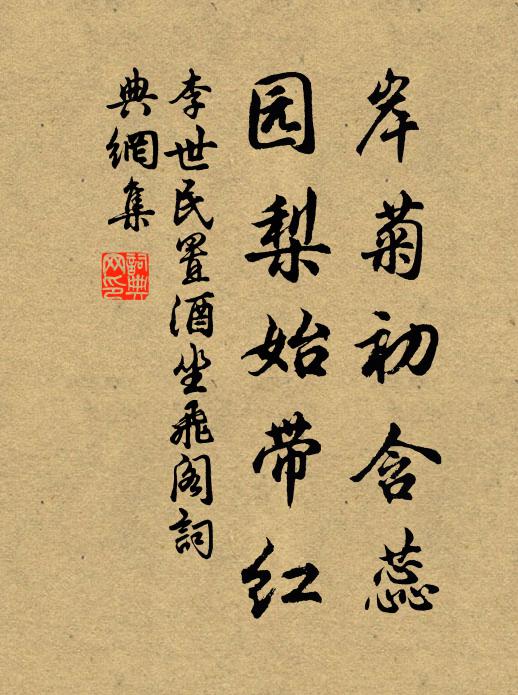 岸菊初含蕊
园梨始带红
李世民置酒坐飛阁詞
典網集
詞典
网印